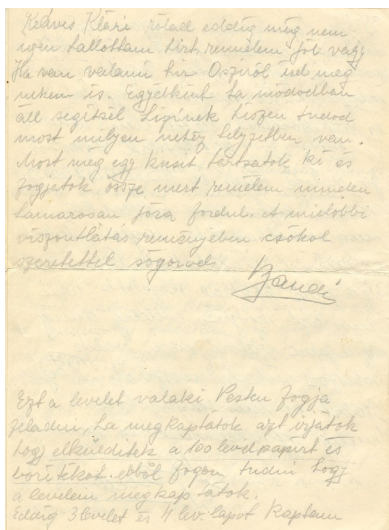 Kedves Klári rólad eddig még nem
igen hallottam hirt remélem jól vagy
Ha van valami hir Osziról ird meg
nekem is. Egyébként ha módodban
áll segitsél Lipinek hiszen tudod
most milyen nehéz helyzetben van.
Most még egy kicsit tartsatok ki és
fogjatok össze mert remélem minden
hamarosan jóra fordul. A mielőbbi
viszontlátás reményében csókol
szeretettel sógorod
Bandi
Ezt a levelet valaki Pesten fogja
feladni, ha megkaptátok azt irjátok
hogy elkülditek a 100 levélpapirt és
boritékot ebből fogom tudni hogy
a levelem megkaptátok.
Eddig 3 levelet és 4 lev. lapot kaptam